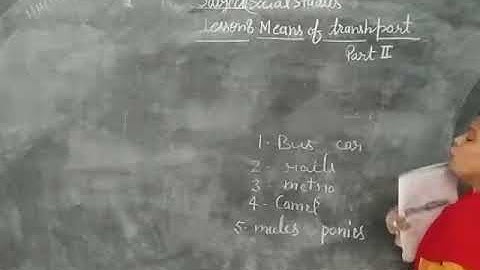 Subject Social Studies
Lesson 6 Means of transhpart
Part II
1- Bus car
2- rails
3- metro
4- Camel
5. mules ponies